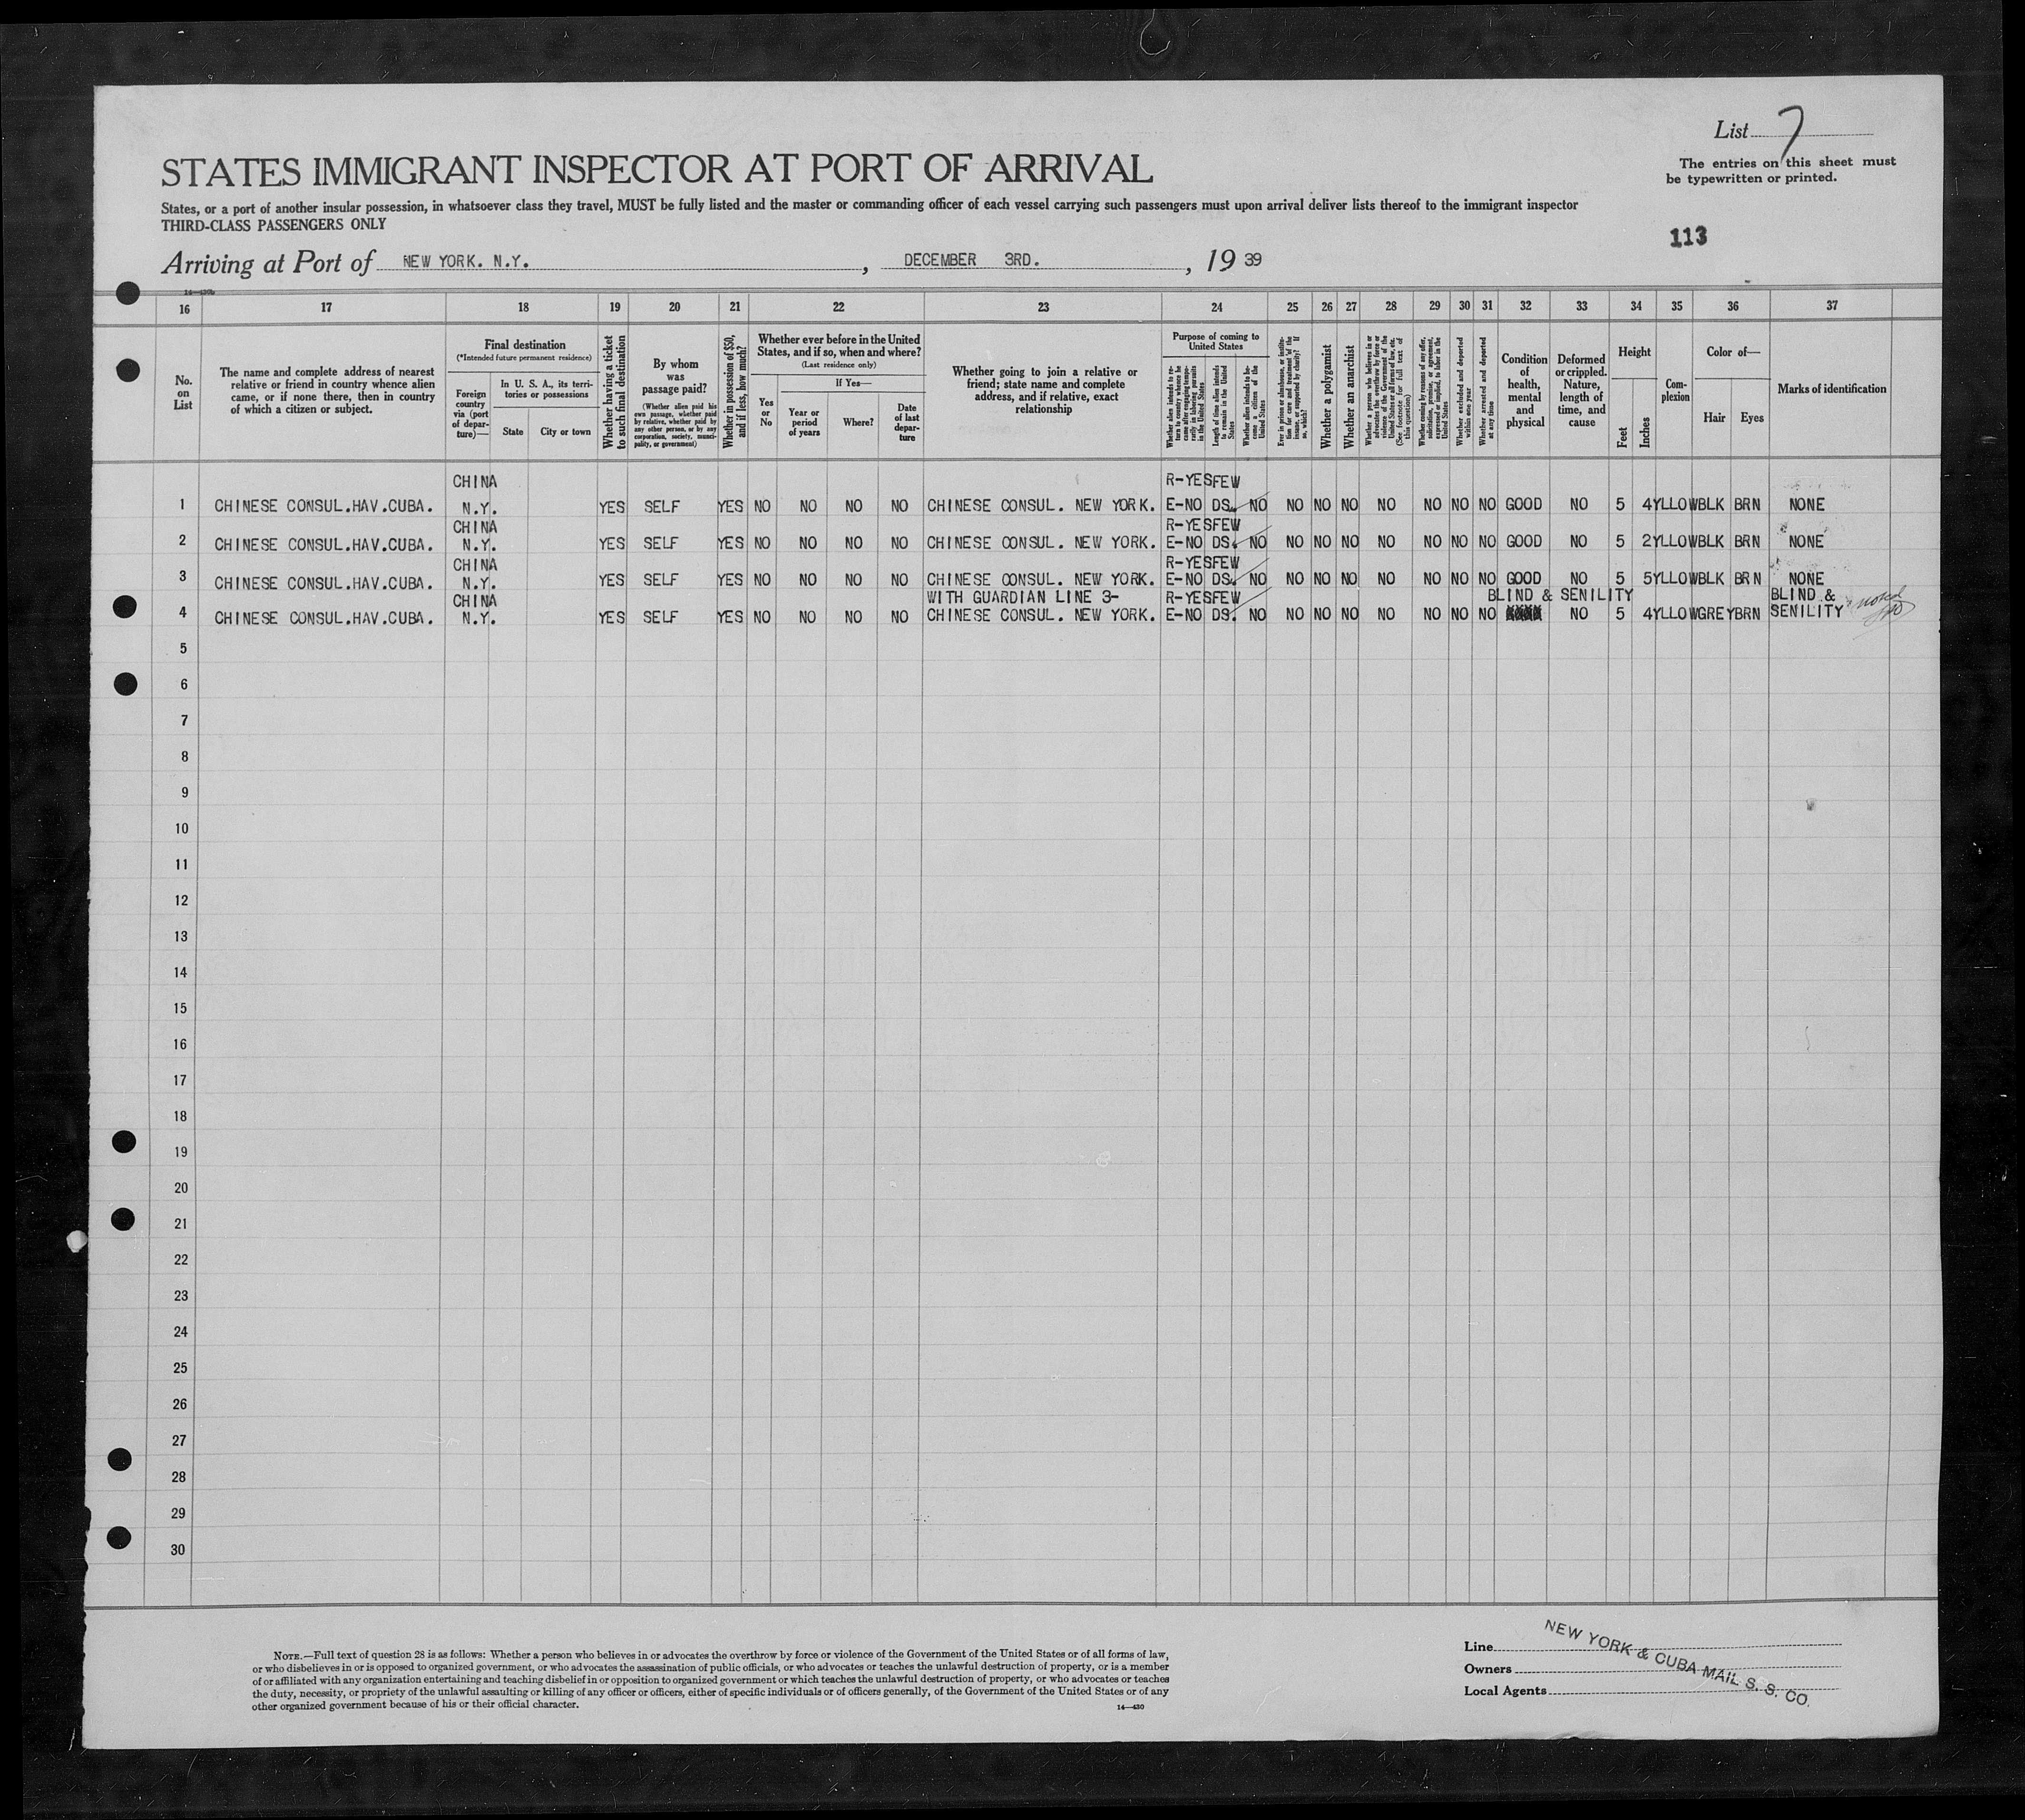 List 7
The entries on this sheet must
be typewritten or printed.
STATES IMMIGRANT INSPECTOR AT PORT OF ARRIVAL
States, or a port of another insular possession, in whatsoever class they travel, MUST be fully listed and the master or commanding officer of each vessel carrying such passengers must upon arrival deliver lists thereof to the immigrant inspector
THIRD-CLASS PASSENGERS ONLY
113
Arriving at Port of NEW YORK. N.Y. , DECEMBER 3RD. , 19 39
16 17 18 19 20 21 22 23 24 25 26 27 28 29 30 31 32 33 34 35 36 37
No. on List
The name and complete address of nearest
relative or friend in country whence alien
came, or if none there, then in country
of which a citizen or subject.
Final destination
(*Intended future permanent residence)
Foreign country via (port of departure)—
In U. S. A., its territories or possessions
State
City or town
Whether having a ticket to such final destination
By whom was passage paid?
(Whether alien paid his own passage, whether paid by relative, whether paid by any other person, or by any corporation, society, municipality, or government)
Whether in possession of $50, and if less, how much?
Whether ever before in the United
States, and if so, when and where?
(Last residence only)
Yes or No
If Yes—
Year or period of years
Where?
Date of last departure
Whether going to join a relative or
friend; state name and complete
address, and if relative, exact
relationship
Purpose of coming to United States
Whether alien intends to return to country whence he came after engaging temporarily in laboring pursuits in the United States
Length of time alien intends to remain in the United States
Whether alien intends to become a citizen of the United States
Ever in prison or almshouse, or institution for care and treatment of the insane, or supported by charity? If so, which?
Whether a polygamist
Whether an anarchist
Whether a person who believes in or advocates the overthrow by force or violence of the Government of the United States or all forms of law, etc. (See footnote for full text of this question)
Whether coming by reasons of any offer, solicitation, promise, or agreement, expressed or implied, to labor in the United States
Whether excluded and deported within one year
Whether arrested and deported at any time
Condition of health, mental and physical
Deformed or crippled. Nature, length of time, and cause
Height
Feet
Inches
Complexion
Color of—
Hair
Eyes
Marks of identification
CHINA R-YES FEW
1 CHINESE CONSUL.HAV.CUBA. N.Y. YES SELF YES NO NO NO NO CHINESE CONSUL. NEW YORK. E-NO DS. NO NO NO NO NO NO NO NO GOOD NO 5 4 YLLOW BLK BRN NONE
CHINA R-YES FEW
2 CHINESE CONSUL.HAV.CUBA. N.Y. YES SELF YES NO NO NO NO CHINESE CONSUL. NEW YORK. E-NO DS. NO NO NO NO NO NO NO NO GOOD NO 5 2 YLLOW BLK BRN NONE
CHINA R-YES FEW
3 CHINESE CONSUL.HAV.CUBA. N.Y. YES SELF YES NO NO NO NO CHINESE CONSUL. NEW YORK. E-NO DS. NO NO NO NO NO NO NO NO GOOD NO 5 5 YLLOW BLK BRN NONE
CHINA WITH GUARDIAN LINE 3- R-YES FEW BLIND & SENILITY BLIND &
4 CHINESE CONSUL.HAV.CUBA. N.Y. YES SELF YES NO NO NO NO CHINESE CONSUL. NEW YORK. E-NO DS. NO NO NO NO NO NO NO NO NO 5 4 YLLOW GREY BRN SENILITY noted
5
6
7
8
9
10
11
12
13
14
15
16
17
18
19
20
21
22
23
24
25
26
27
28
29
30
NOTE.—Full text of question 28 is as follows: Whether a person who believes in or advocates the overthrow by force or violence of the Government of the United States or of all forms of law,
or who disbelieves in or is opposed to organized government, or who advocates the assassination of public officials, or who advocates or teaches the unlawful destruction of property, or is a member
of or affiliated with any organization entertaining and teaching disbelief in or opposition to organized government or which teaches the unlawful destruction of property, or who advocates or teaches
the duty, necessity, or propriety of the unlawful assaulting or killing of any officer or officers, either of specific individuals or of officers generally, of the Government of the United States or of any
other organized government because of his or their official character.
14—430
Line
Owners
Local Agents
NEW YORK & CUBA MAIL S. S. CO.